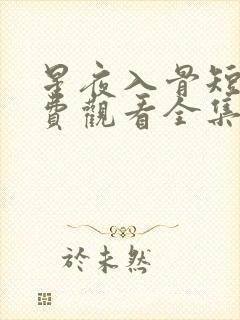 星夜入骨短
費觀看全集
於未然